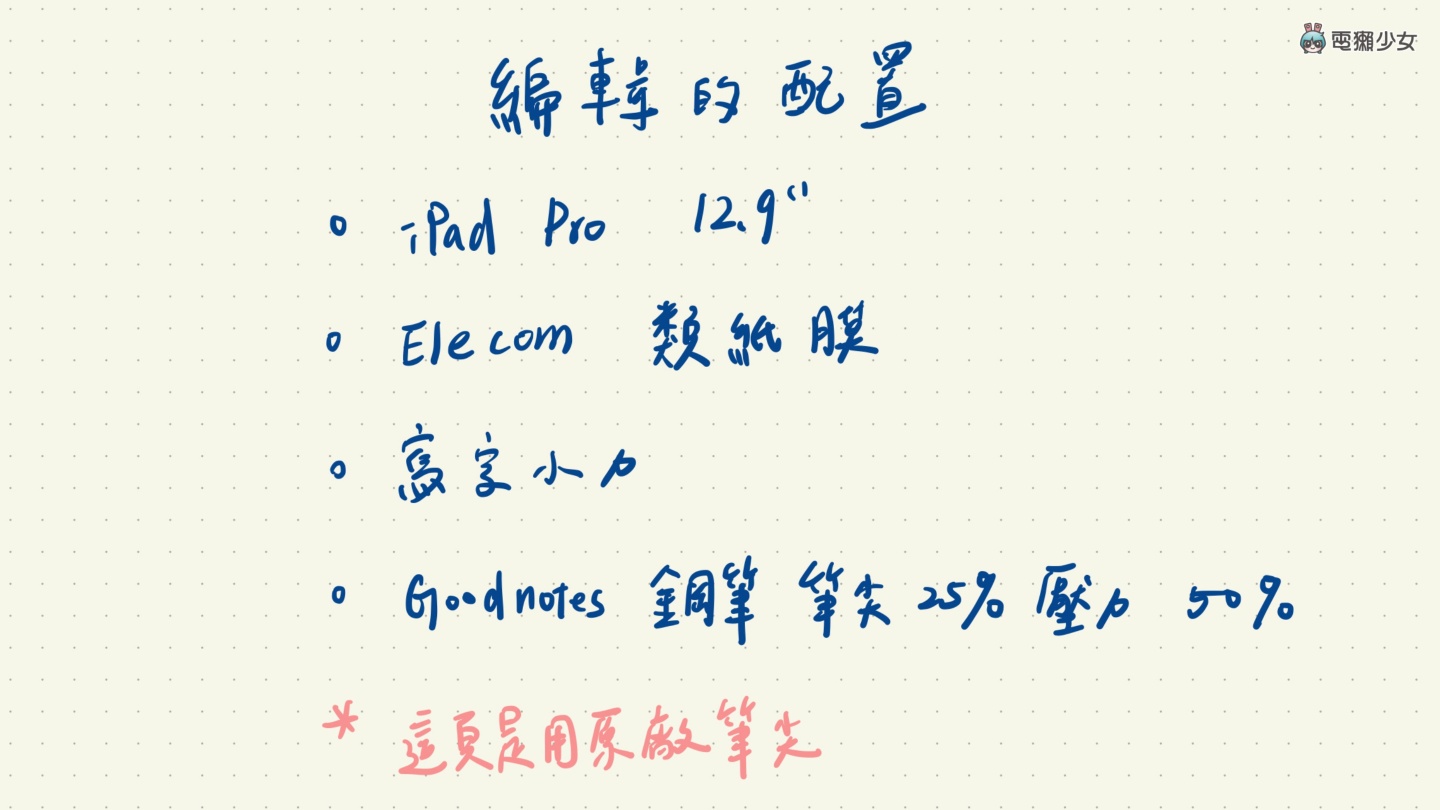 電獺少女
編輯的配置
◦ iPad Pro 12.9"
◦ Elecom 類紙膜
◦ 寫字小力
◦ Goodnotes 鋼筆 筆尖 25% 壓力 50%
* 這頁是用原廠筆尖